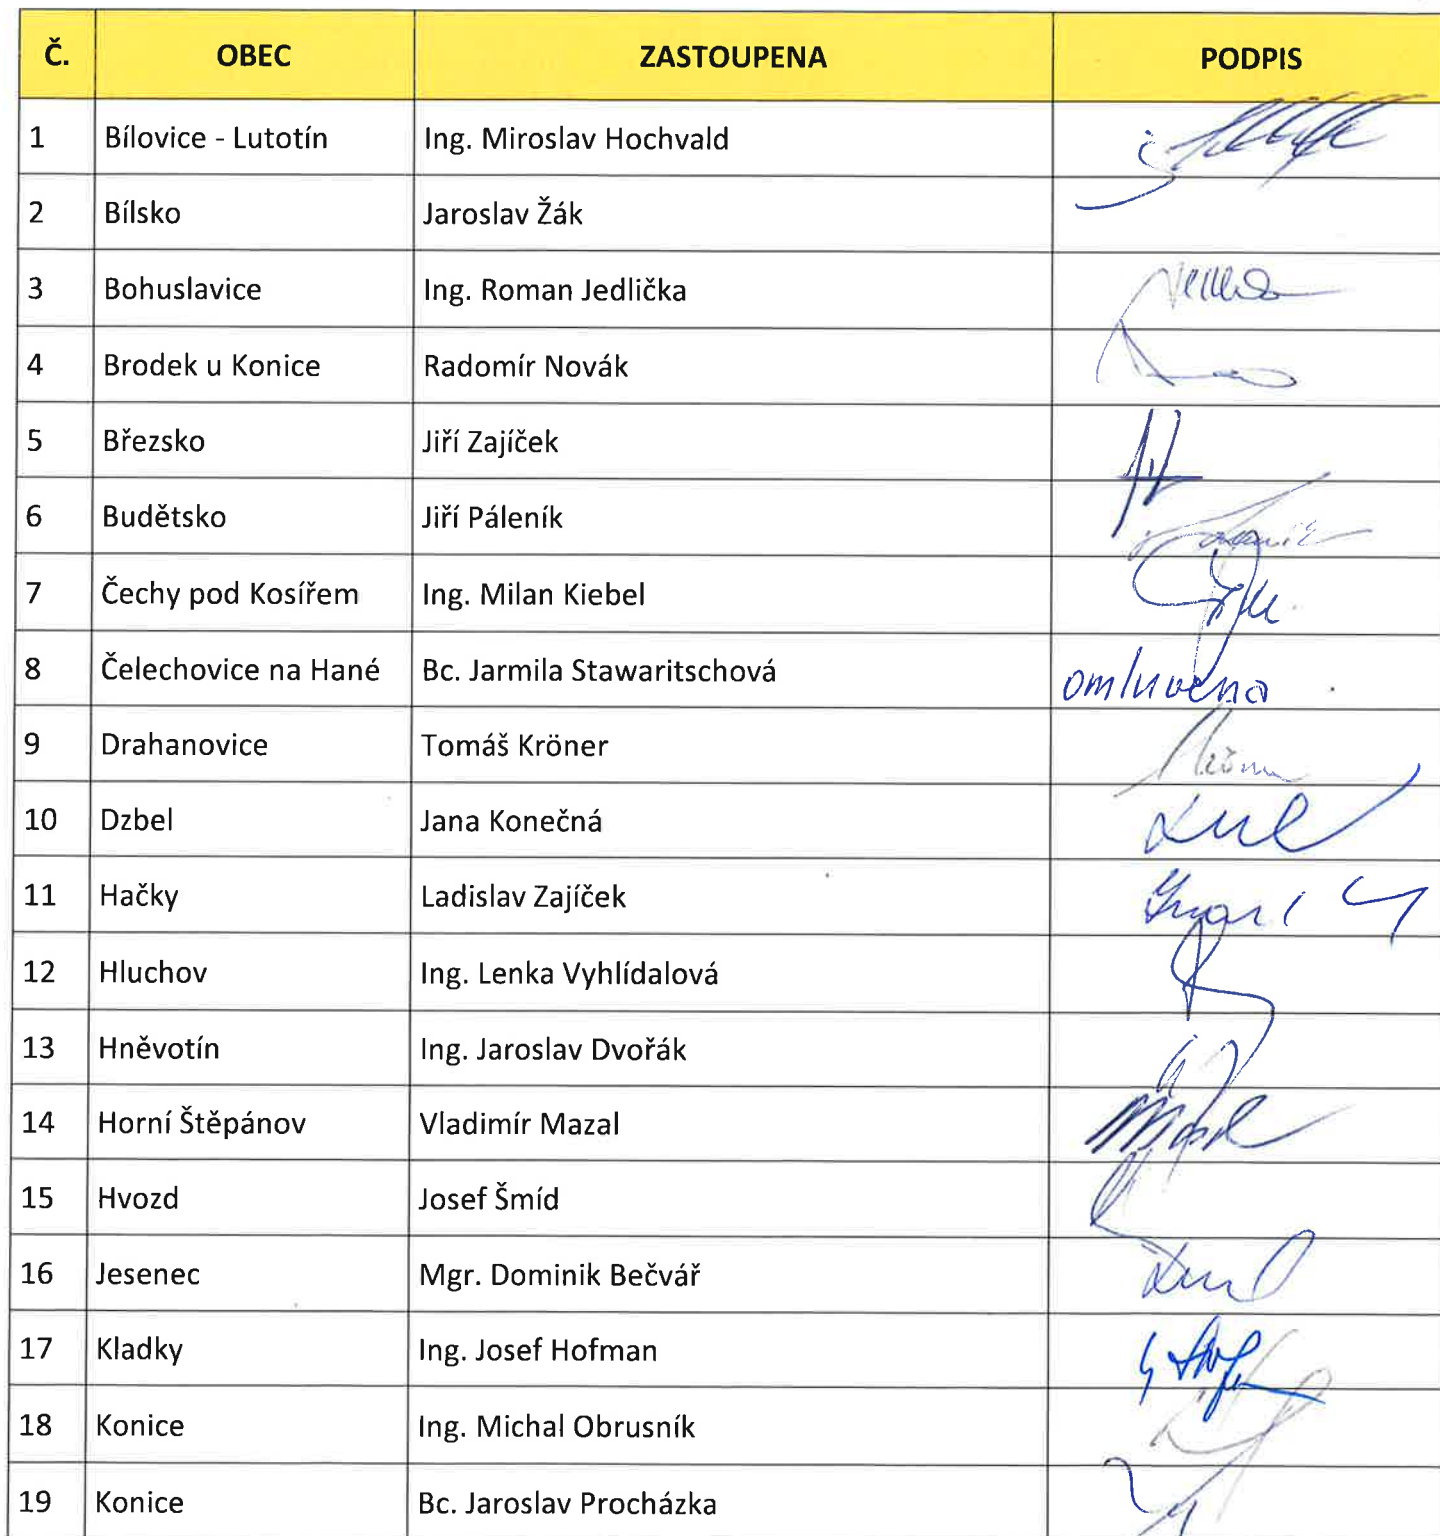 Č. OBEC ZASTOUPENA PODPIS
1 Bílovice - Lutotín Ing. Miroslav Hochvald
2 Bílsko Jaroslav Žák
3 Bohuslavice Ing. Roman Jedlička
4 Brodek u Konice Radomír Novák
5 Březsko Jiří Zajíček
6 Budětsko Jiří Páleník
7 Čechy pod Kosířem Ing. Milan Kiebel
8 Čelechovice na Hané Bc. Jarmila Stawaritschová omluvena
9 Drahanovice Tomáš Kröner
10 Dzbel Jana Konečná
11 Hačky Ladislav Zajíček
12 Hluchov Ing. Lenka Vyhlídalová
13 Hněvotín Ing. Jaroslav Dvořák
14 Horní Štěpánov Vladimír Mazal
15 Hvozd Josef Šmíd
16 Jesenec Mgr. Dominik Bečvář
17 Kladky Ing. Josef Hofman
18 Konice Ing. Michal Obrusník
19 Konice Bc. Jaroslav Procházka